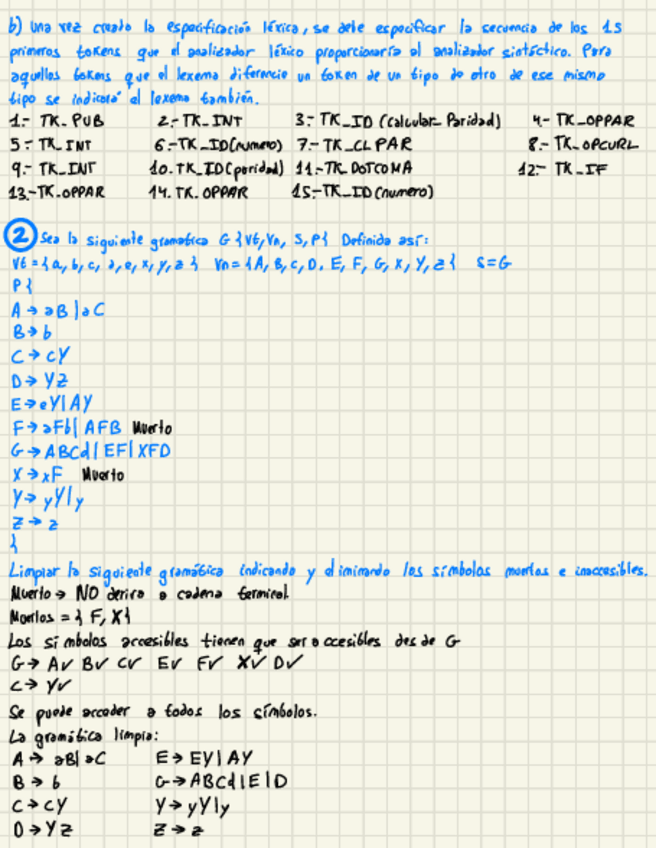 b) Una vez creado la especificación léxica, se debe especificar la secuencia de los 15
primeros tokens que el analizador léxico proporcionaría al analizador sintáctico. Para
aquellos tokens que el lexema diferencie un token de un tipo de otro de ese mismo
tipo se indicará el lexema también.
1.- TK_PUB 2.- TK_INT 3.- TK_ID (calcular_Paridad) 4- TK_OPPAR
5.- TK_INT 6.- TK_ID(numero) 7.- TK_CLPAR 8.- TK_OPCURL
9.- TK_INT 10. TK_ID(paridad) 11.- TK_DOTCOMA 12.- TK_IF
13.- TK_OPPAR 14. TK_OPPAR 15.- TK_ID(numero)
2 Sea la siguiente gramática G {Vt, Vn, S, P} Definida así:
Vt = {a, b, c, d, e, x, y, z} Vn = {A, B, C, D, E, F, G, X, Y, Z} S=G
P{
A → aB | aC
B → b
C → cY
D → YZ
E → eY | AY
F → aFb | AFB Muerto
G → ABCd | EF | XFD
X → xF Muerto
Y → yY | y
Z → z
}
Limpiar la siguiente gramática indicando y eliminando los símbolos muertos e inaccesibles.
Muerto → NO deriva a cadena terminal
Muertos = {F, X}
Los símbolos accesibles tienen que ser accesibles desde G
G → A✓ B✓ C✓ E✓ F✓ X✓ D✓
C → Y✓
Se puede acceder a todos los símbolos.
La gramática limpia:
A → aB | aC E → EY | AY
B → b G → ABCd | E | D
C → cY Y → yY | y
D → YZ Z → z